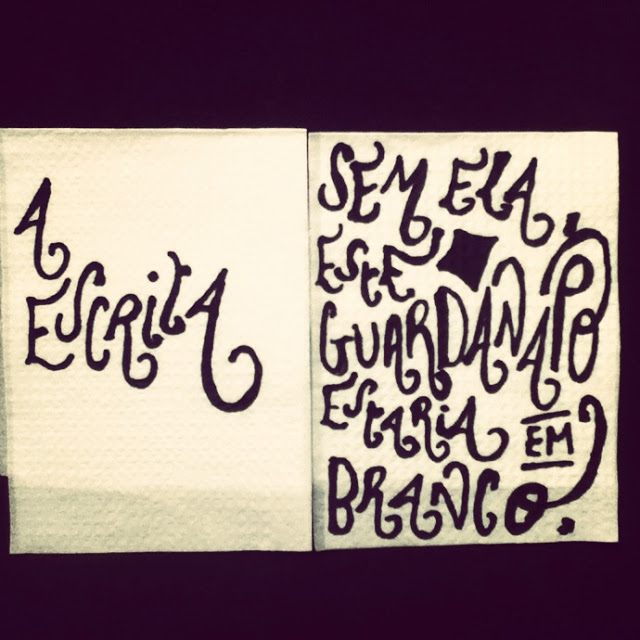 A
ESCRITA
SEM ELA
ESTE
GUARDANAPO
ESTARIA
EM
BRANCO.